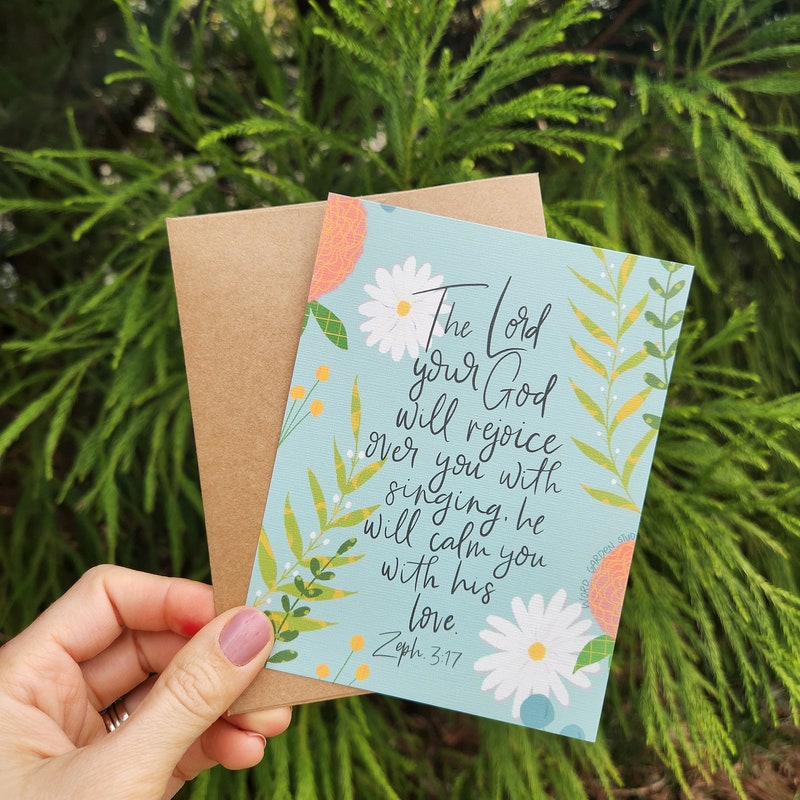 The Lord
your God
will rejoice
over you with
singing, he
will calm you
with his
love.
Zeph. 3:17
WORD GARDEN STUD